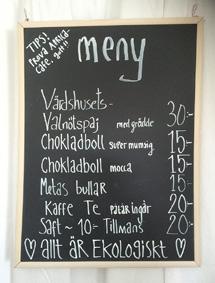 TIPS!
PROVA ARNICA-
CAFÉ. gott!!
meny
Värdshusets-
Valnötspaj med grädde 30:-
Chokladboll super mumsig. 15:-
Chokladboll mocca 15:-
Metas bullar 15:-
Kaffe Te påtår ingår 20:-
Saft ~ 10:- Tillmans 20:-
♡ allt är Ekologiskt ♡